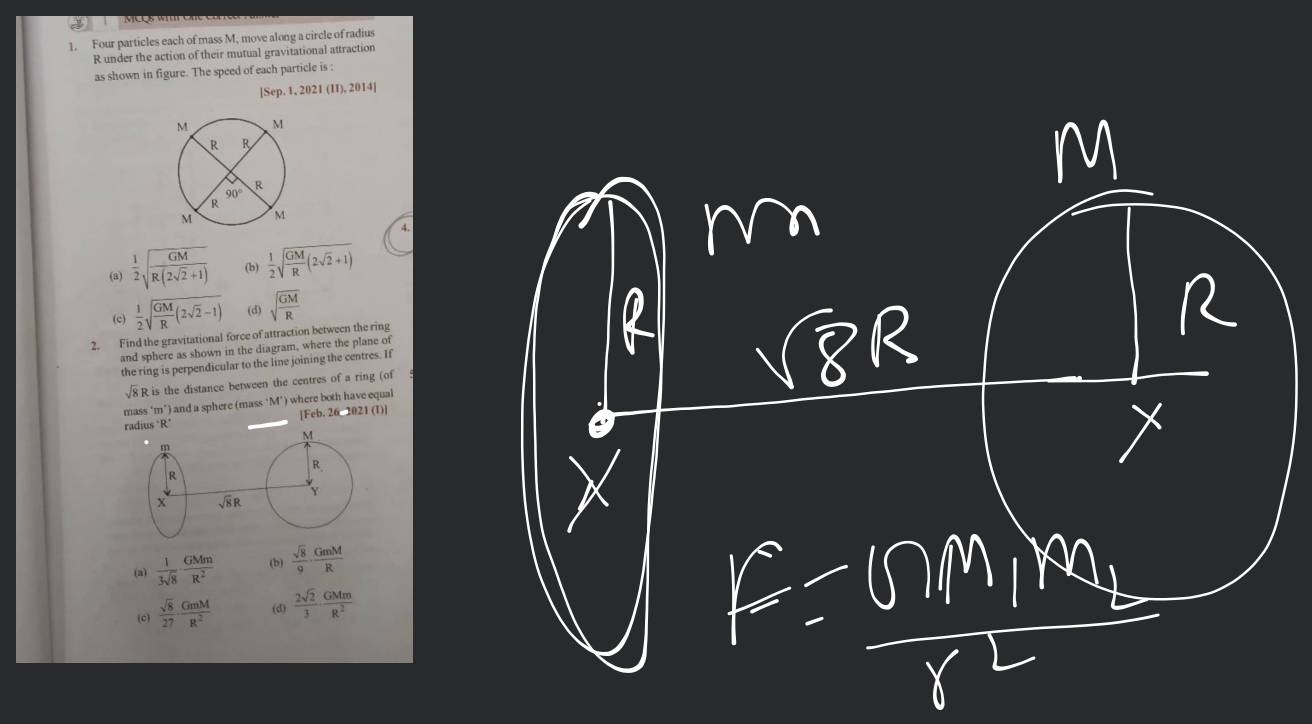 MCQs with One Correct Answer
1. Four particles each of mass M, move along a circle of radius
R under the action of their mutual gravitational attraction
as shown in figure. The speed of each particle is :
[Sep. 1, 2021 (II), 2014]
M M
R R
90° R
R
M M
(a) 1/2 √(GM / R(2√2+1)) (b) 1/2 √(GM/R (2√2+1))
(c) 1/2 √(GM/R (2√2-1)) (d) √(GM/R)
4.
2. Find the gravitational force of attraction between the ring
and sphere as shown in the diagram, where the plane of
the ring is perpendicular to the line joining the centres. If
√8 R is the distance between the centres of a ring (of
mass 'm') and a sphere (mass 'M') where both have equal
radius 'R'
[Feb. 26, 2021 (I)]
m M
R R
X √8R Y
(a) 1/3√8 · GMm/R² (b) √8/9 · GmM/R
(c) √8/27 · GmM/R² (d) 2√2/3 · GMm/R²
m M
R √8R R
X Y
F = GM₁M₂/r²